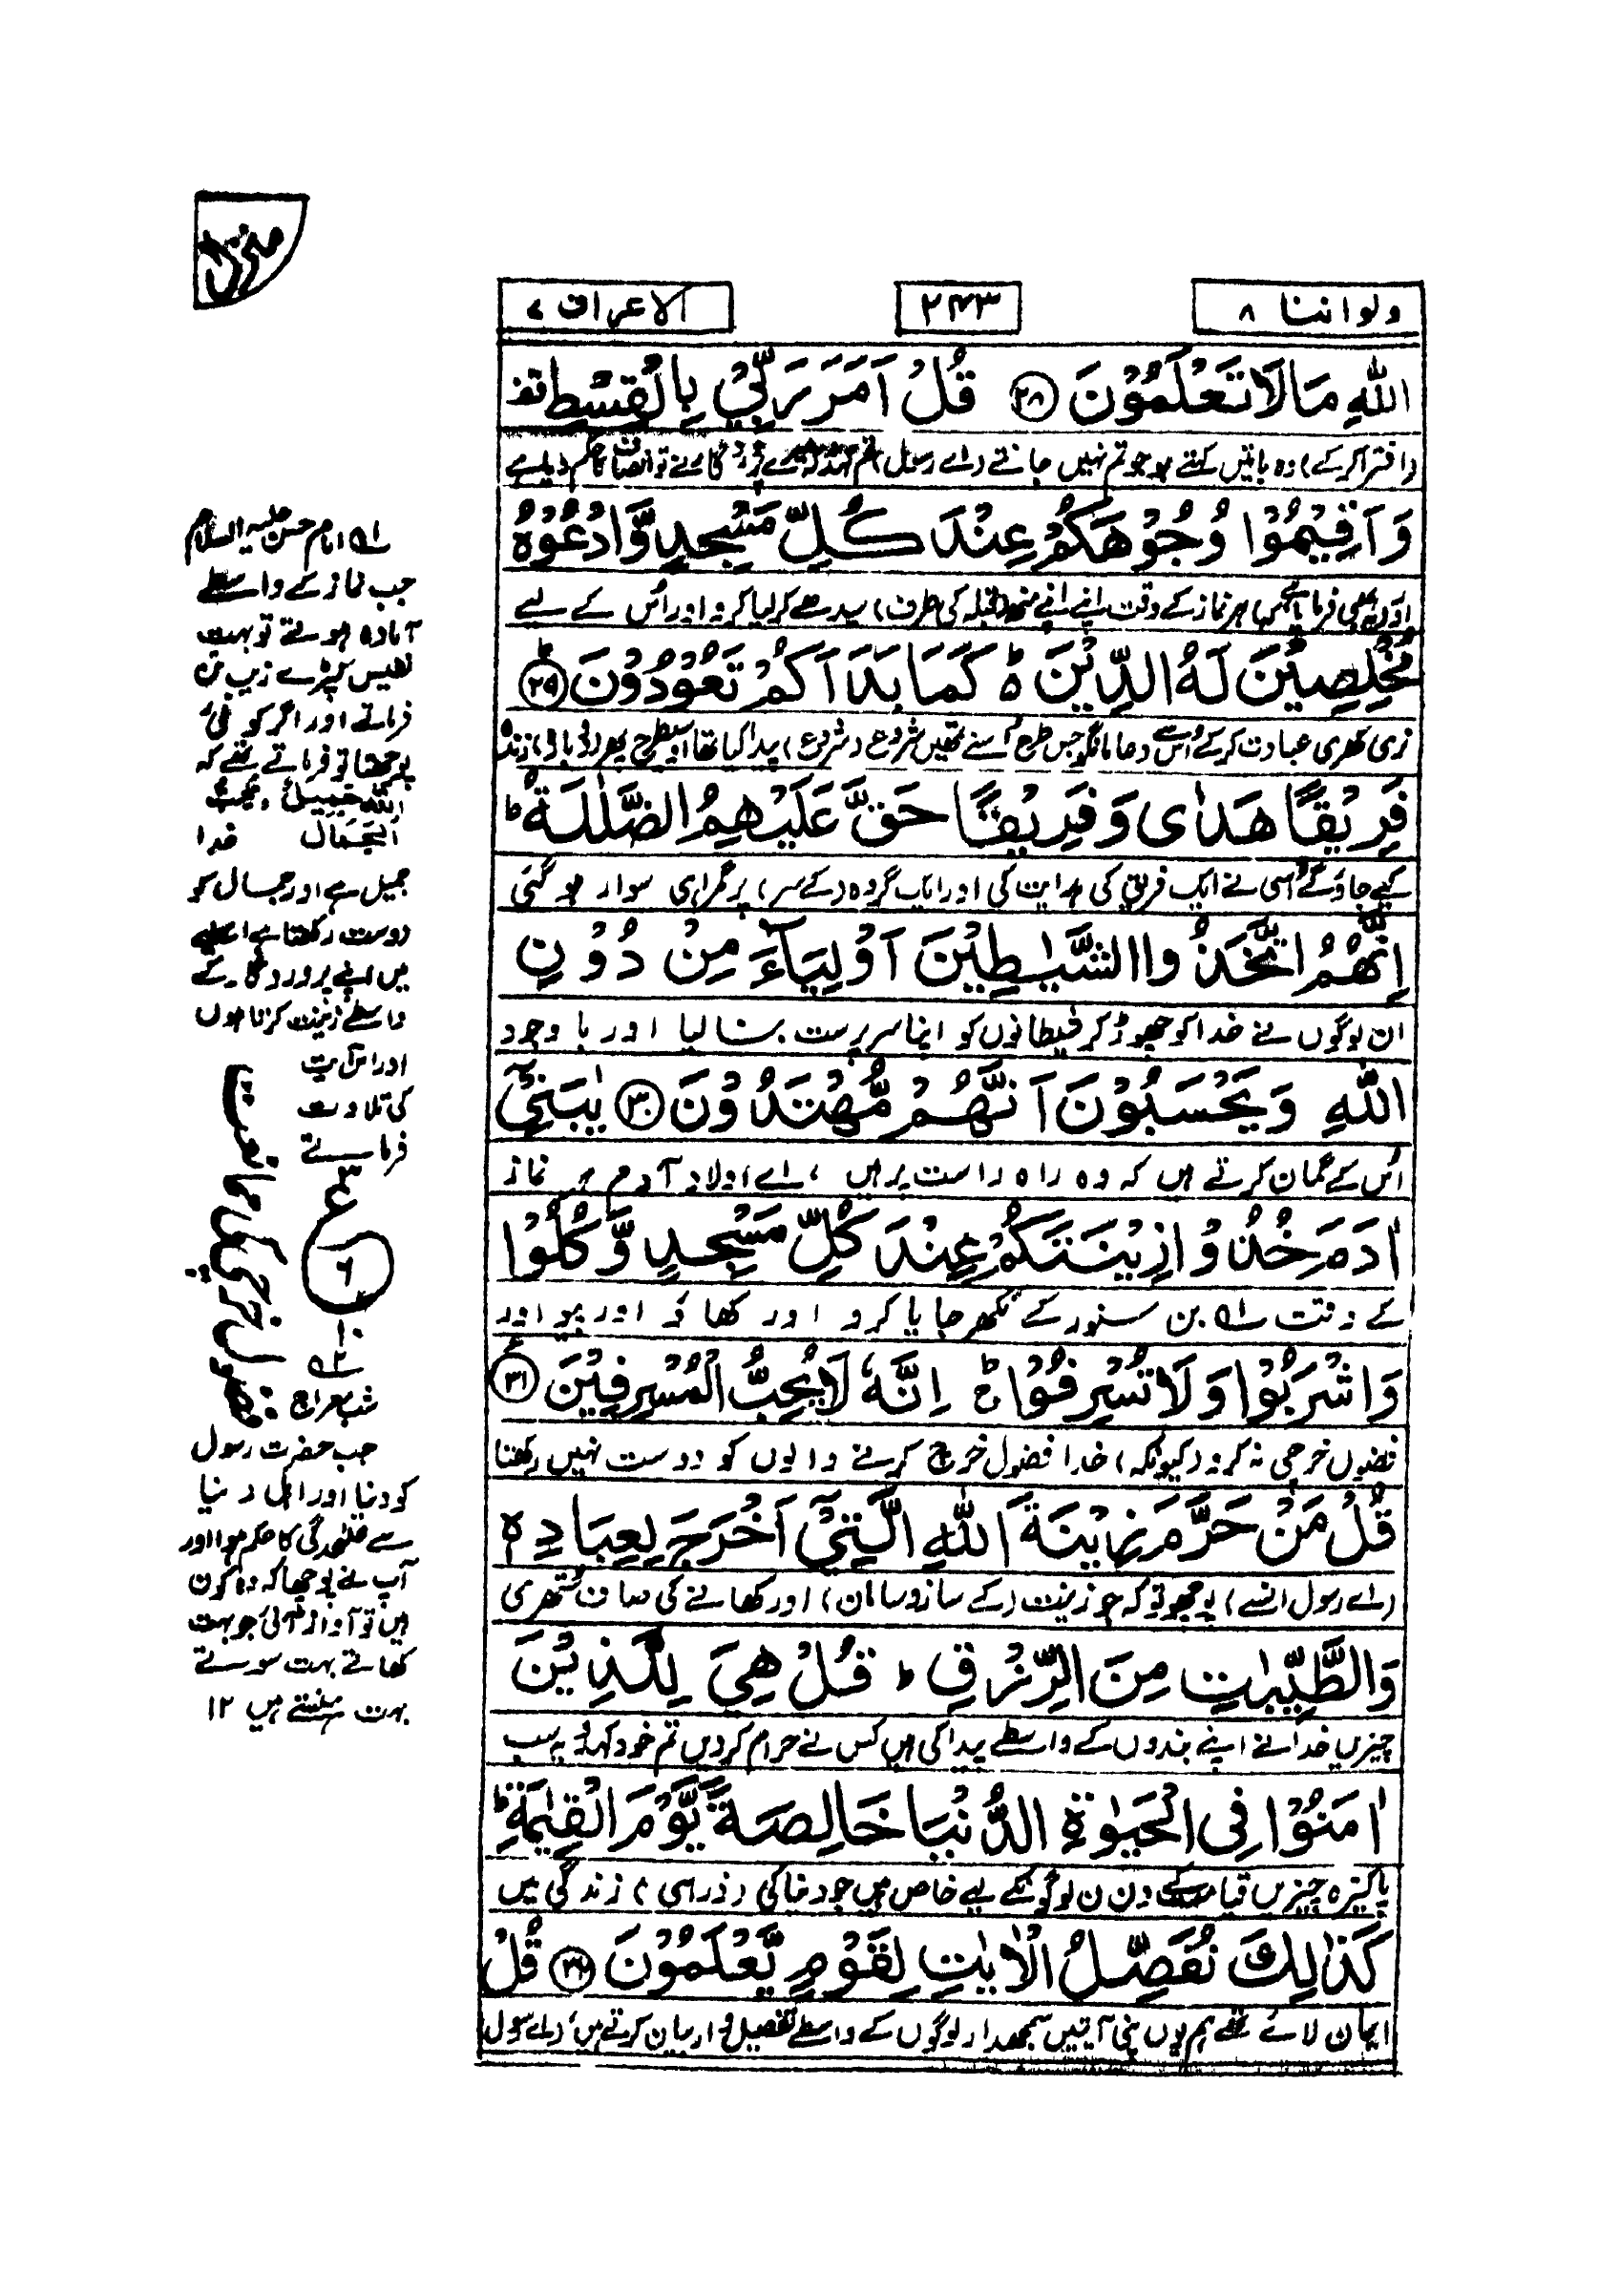 منزل
ولواننا ۸
۲۴۳
الاعراف ۷
اللّٰهِ مَا لَا تَعْلَمُوْنَ ﴿۲۸﴾ قُلْ اَمَرَ رَبِّیْ بِالْقِسْطِ قف
(افترا کرکے) وہ باتیں کہتے ہو جو تم نہیں جانتے (اے رسول) تم کہدو کہ میرے پروردگار نے تو انصاف کا حکم دیا ہے
وَ اَقِیْمُوْا وُجُوْهَكُمْ عِنْدَ كُلِّ مَسْجِدٍ وَّ ادْعُوْهُ
اور یہ بھی فرمایا ہے کہ ہر نماز کے وقت اپنے اپنے منھ (قبلہ کی طرف) سیدھے کر لیا کرو اور اُس کے لیے
مُخْلِصِیْنَ لَهُ الدِّیْنَ ؕ كَمَا بَدَاَكُمْ تَعُوْدُوْنَ ؕ ﴿۲۹﴾
نری کھری عبادت کرکے اُس سے دعا مانگو جس طرح اُسنے تمھیں شروع (شروع) پیدا کیا تھا اسیطرح پھر (دوبارہ) زندہ
فَرِیْقًا هَدٰی وَ فَرِیْقًا حَقَّ عَلَیْهِمُ الضَّلٰلَةُ ؕ
کیے جاؤ گے اُسی نے ایک فریق کی ہدایت کی اور ایک گروہ (کے سر) پر گمراہی سوار ہو گئی
اِنَّهُمُ اتَّخَذُوا الشَّیٰطِیْنَ اَوْلِیَآءَ مِنْ دُوْنِ
ان لوگوں نے خدا کو چھوڑ کر شیطانوں کو اپنا سرپرست بنا لیا اور باوجود
اللّٰهِ وَ یَحْسَبُوْنَ اَنَّهُمْ مُّهْتَدُوْنَ ﴿۳۰﴾ یٰبَنِیْۤ
اُس کے گمان کرتے ہیں کہ وہ راہ راست پر ہیں ، اے اولاد آدم ہر نماز
اٰدَمَ خُذُوْا زِیْنَتَكُمْ عِنْدَ كُلِّ مَسْجِدٍ وَّ كُلُوْا
کے وقت ؎۱ بن سنور کے نکھر جایا کرو اور کھاؤ اور پیو اور
وَ اشْرَبُوْا وَ لَا تُسْرِفُوْا ۚ اِنَّهٗ لَا یُحِبُّ الْمُسْرِفِیْنَ ﴿۳۱﴾ ع
فضول خرچی نہ کرو (کیونکہ) خدا فضول خرچ کرنے والوں کو دوست نہیں رکھتا
قُلْ مَنْ حَرَّمَ زِیْنَةَ اللّٰهِ الَّتِیْۤ اَخْرَجَ لِعِبَادِهٖ
(اے رسول انسے) پوچھو تو کہ جو زینت (کے ساز و سامان) اور کھانے کی صاف ستھری
وَ الطَّیِّبٰتِ مِنَ الرِّزْقِ ؕ قُلْ هِیَ لِلَّذِیْنَ
چیزیں خدا نے اپنے بندوں کے واسطے پیدا کی ہیں کس نے حرام کر دیں تم خود کہدو کہ یہ سب
اٰمَنُوْا فِی الْحَیٰوةِ الدُّنْیَا خَالِصَةً یَّوْمَ الْقِیٰمَةِ ؕ
پاکیزہ چیزیں قیامت کے دن ان لوگوں کے لیے خاص ہیں جو دنیا کی (ذراسی) زندگی میں
كَذٰلِكَ نُفَصِّلُ الْاٰیٰتِ لِقَوْمٍ یَّعْلَمُوْنَ ﴿۳۲﴾ قُلْ
ایمان لائے تھے ہم یوں اپنی آیتیں سمجھدار لوگوں کے واسطے تفصیل وار بیان کرتے ہیں (اے رسول
؎۱ امام حسن علیہ السلام
جب نماز کے واسطے
آمادہ ہوتے تو بہت
نفیس کپڑے زیب تن
فرماتے اور اگر کوئی
پوچھتا تو فرماتے تھے کہ
اللّٰہ جَمِیلٌ و یُحِبُّ
الْجَمَال خدا
جمیل ہے اور جمال کو
دوست رکھتا ہے اسلیے
میں اپنے پروردگار کے
واسطے زینت کرتا ہوں
اور اس آیت
کی تلاوت
فرماتے
۳
ع
۶
۱۰
فضول خرچی کی ممانعت
؎۲
شب معراج
جب حضرت رسول
کو دنیا اور اہل دنیا
سے علٰحدگی کا حکم ہوا اور
آپ نے پوچھا کہ وہ کون
ہیں تو آواز آئی جو بہت
کھاتے بہت سوتے
بہت ہنستے ہیں ۱۲